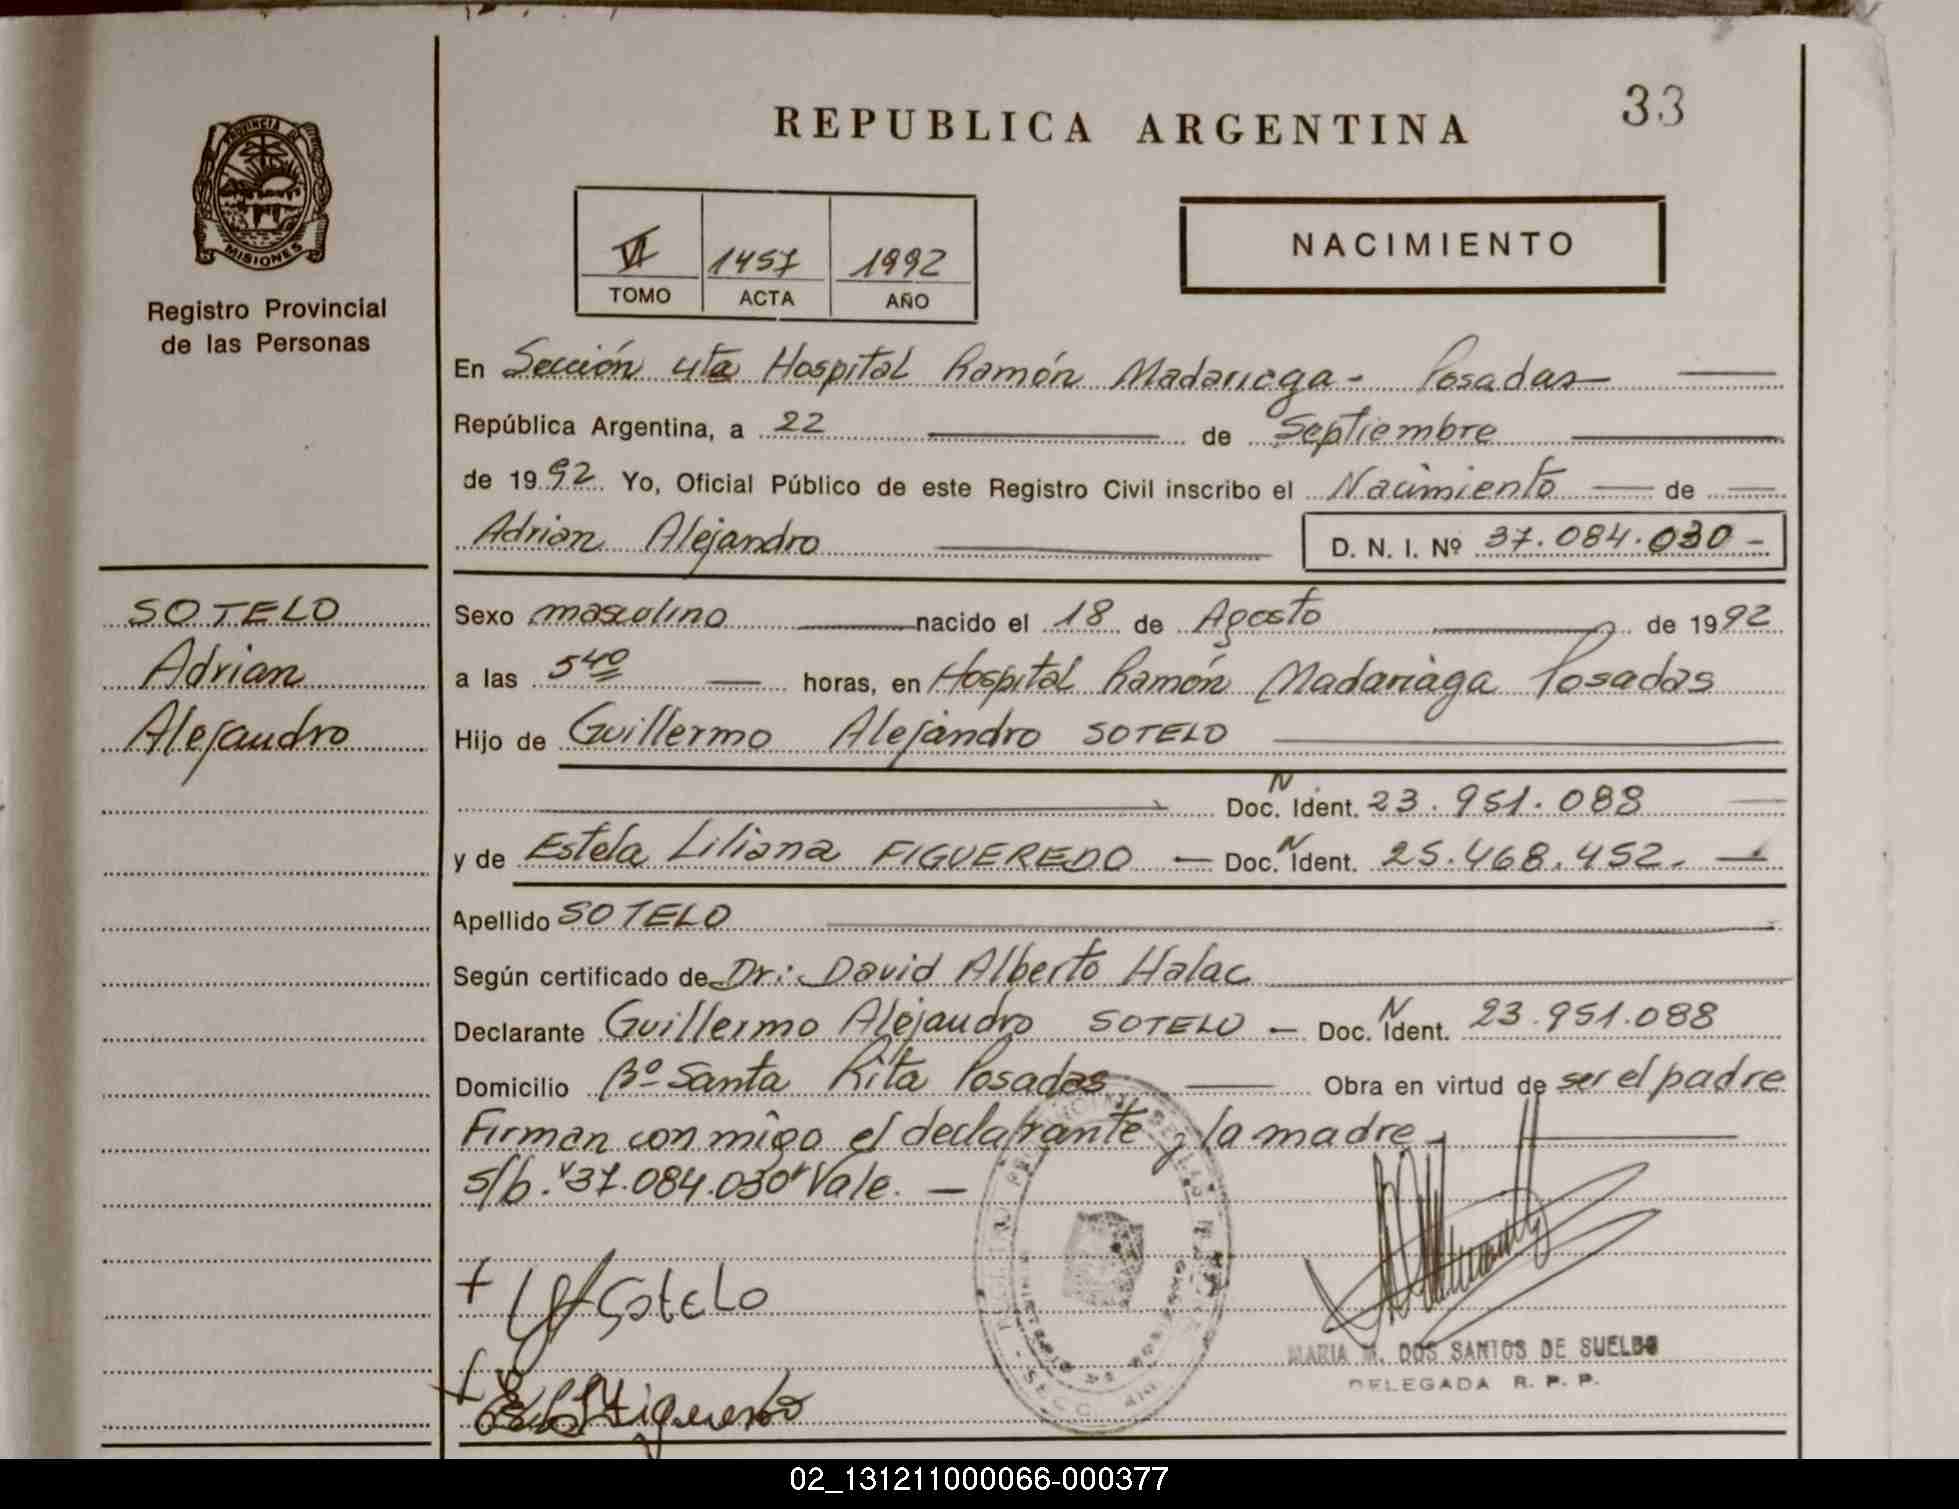 33
REPUBLICA ARGENTINA
PROVINCIA DE
MISIONES
Registro Provincial
de las Personas
VI 1457 1992
TOMO ACTA AÑO
NACIMIENTO
En Sección 4ta Hospital Ramón Madariaga - Posadas
República Argentina, a 22 de Septiembre
de 1992 Yo, Oficial Público de este Registro Civil inscribo el Nacimiento de
Adrian Alejandro D. N. I. Nº 37.084.030 -
SOTELO
Adrian
Alejandro
Sexo masculino nacido el 18 de Agosto de 1992
a las 540 horas, en Hospital Ramón Madariaga Posadas
Hijo de Guillermo Alejandro SOTELO
Doc. N Ident. 23.951.088
y de Estela Liliana FIGUEREDO — Doc. N Ident. 25.468.452.
Apellido SOTELO
Según certificado de Dr: David Alberto Halac
Declarante Guillermo Alejandro SOTELO — Doc. N Ident. 23.951.088
Domicilio Bº Santa Rita Posadas Obra en virtud de ser el padre
Firman conmigo el declarante y la madre
s/b. "37.084.030" Vale. —
Sotelo
Figueredo
MARIA M. DOS SANTOS DE SUELDO
DELEGADA R. P. P.
02_131211000066-000377